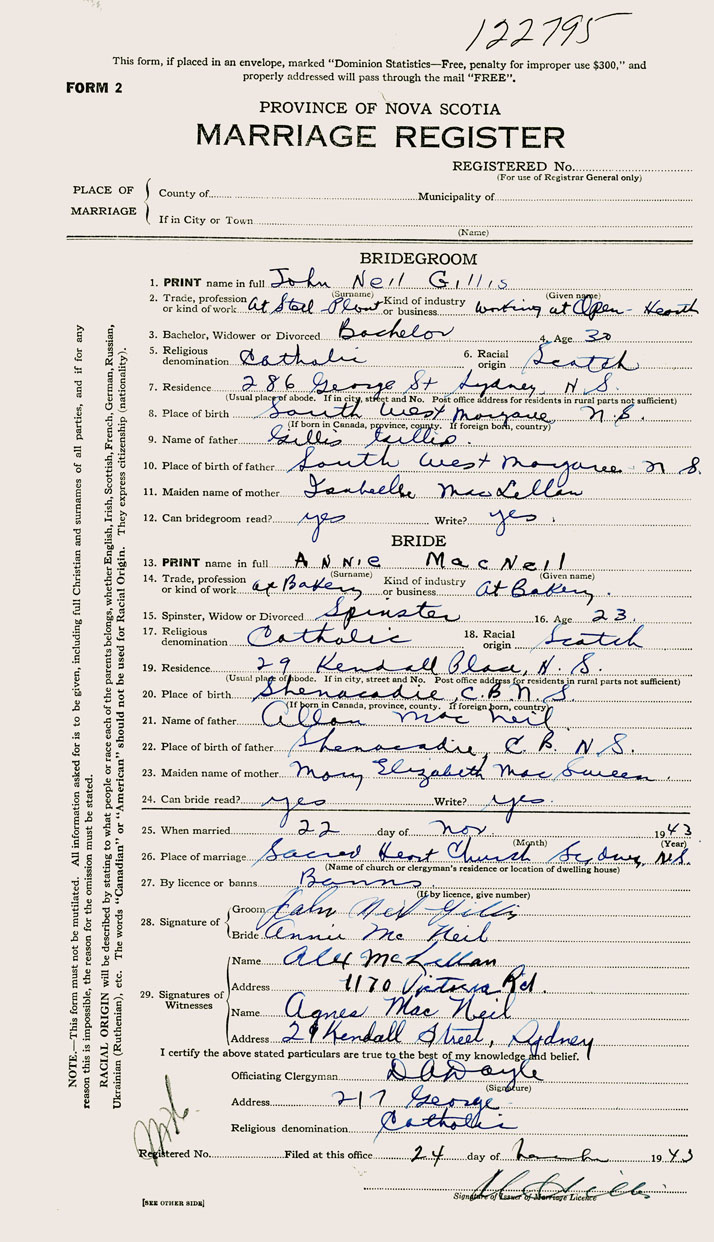 122795
This form, if placed in an envelope, marked "Dominion Statistics—Free, penalty for improper use $300," and
properly addressed will pass through the mail "FREE".
FORM 2
PROVINCE OF NOVA SCOTIA
MARRIAGE REGISTER
REGISTERED No.
(For use of Registrar General only)
PLACE OF MARRIAGE
County of Municipality of
If in City or Town
(Name)
BRIDEGROOM
1. PRINT name in full John Neil Gillis
(Surname) (Given name)
2. Trade, profession or kind of work at Steel Plant Kind of industry or business working at Open-Hearth
3. Bachelor, Widower or Divorced Bachelor 4. Age 30
5. Religious denomination Catholic 6. Racial origin Scotch
7. Residence 286 George St Sydney, N.S.
(Usual place of abode. If in city, street and No. Post office address for residents in rural parts not sufficient)
8. Place of birth South West Margaree N.S.
(If born in Canada, province, county. If foreign born, country)
9. Name of father Gillis Gillis.
10. Place of birth of father South West Margaree N S.
11. Maiden name of mother Isabelle MacLellan
12. Can bridegroom read? yes Write? yes.
BRIDE
13. PRINT name in full ANNIE MacNeil
(Surname) (Given name)
14. Trade, profession or kind of work at Bakery Kind of industry or business At Bakery.
15. Spinster, Widow or Divorced Spinster 16. Age 23.
17. Religious denomination Catholic 18. Racial origin Scotch
19. Residence 29 Kendall Place, N.S.
(Usual place of abode. If in city, street and No. Post office address for residents in rural parts not sufficient)
20. Place of birth Shenacadie, C.B. N.S.
(If born in Canada, province, county. If foreign born, country)
21. Name of father Allan Mac Neil
22. Place of birth of father Shenacadie, C.B. N.S.
23. Maiden name of mother Mary Elizabeth Mac Sween.
24. Can bride read? yes Write? yes.
25. When married 22 day of Nov 1943
(Month) (Year)
26. Place of marriage Sacred Heart Church Sydney, N.S.
(Name of church or clergyman's residence or location of dwelling house)
27. By licence or banns Banns
(If by licence, give number)
28. Signature of
Groom John Neil Gillis
Bride Annie Mc Neil
29. Signatures of Witnesses
Name Alex McLellan
Address 1170 Victoria Rd.
Name Agnes Mac Neil
Address 29 Kendall Street, Sydney
I certify the above stated particulars are true to the best of my knowledge and belief.
Officiating Clergyman D A Doyle
(Signature)
Address 217 George
Religious denomination Catholic
Registered No. Filed at this office 24 day of 1943
Signature of Issuer of Marriage Licence
[SEE OTHER SIDE]
NOTE.—This form must not be mutilated. All information asked for is to be given, including full Christian and surnames of all parties, and if for any
reason this is impossible, the reason for the omission must be stated.
RACIAL ORIGIN will be described by stating to what people or race each of the parents belongs, whether English, Irish, Scottish, French, German, Russian,
Ukrainian (Ruthenian), etc. The words "Canadian" or "American" should not be used for Racial Origin. They express citizenship (nationality).